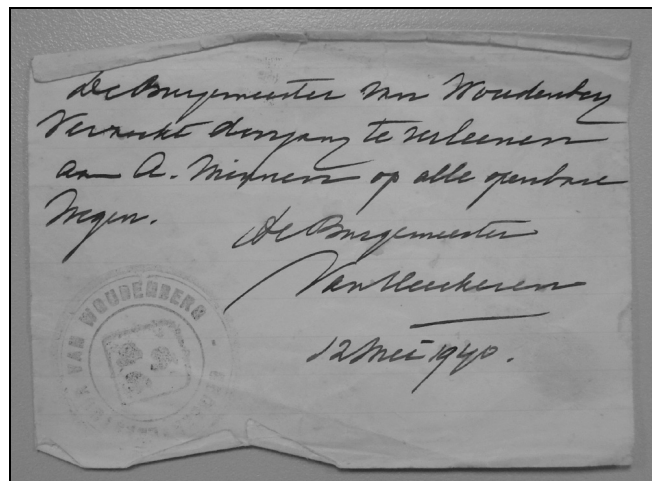 De Burgemeester van Woudenberg
Verzoekt doorgang te verleenen
aan A. Minnen op alle openbare
Wegen.
De Burgemeester
Van Heeckeren
12 Mei 1940.
VAN WOUDENBERG